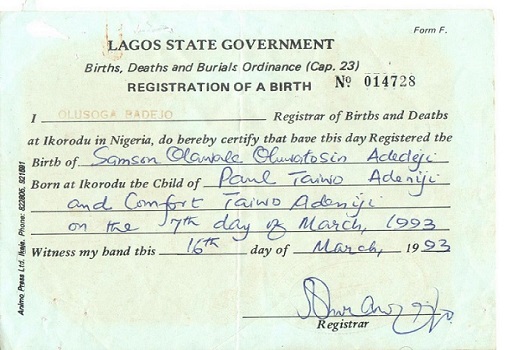 Form F.
LAGOS STATE GOVERNMENT
Births, Deaths and Burials Ordinance (Cap. 23)
REGISTRATION OF A BIRTH
Nº 014728
I OLUSOGA BADEJO Registrar of Births and Deaths
at Ikorodu in Nigeria, do hereby certify that have this day Registered the
Birth of Samson Olawale Oluwatosin Adedeji
Born at Ikorodu the Child of Paul Taiwo Adeniji
and Comfort Taiwo Adeniji
on the 7th day of March, 1993
Witness my hand this 16th day of March, 1993
Registrar
Animo Press Ltd. Ikeja. Phone: